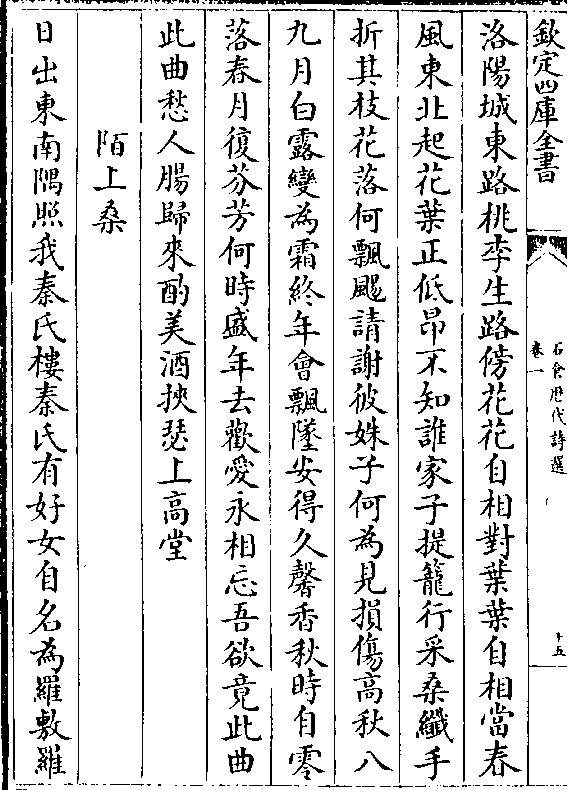 欽定四庫全書
石倉歷代詩選
卷一
十五
洛陽城東路桃李生路傍花花自相對葉葉自相當春
風東北起花葉正低昂不知誰家子提籠行采桑纖手
折其枝花落何飄颺請謝彼姝子何為見損傷高秋八
九月白露變為霜終年會飄墜安得久馨香秋時自零
落春月復芬芳何時盛年去歡愛永相忘吾欲竟此曲
此曲愁人腸歸來酌美酒挾瑟上高堂
陌上桑
日出東南隅照我秦氏樓秦氏有好女自名為羅敷羅